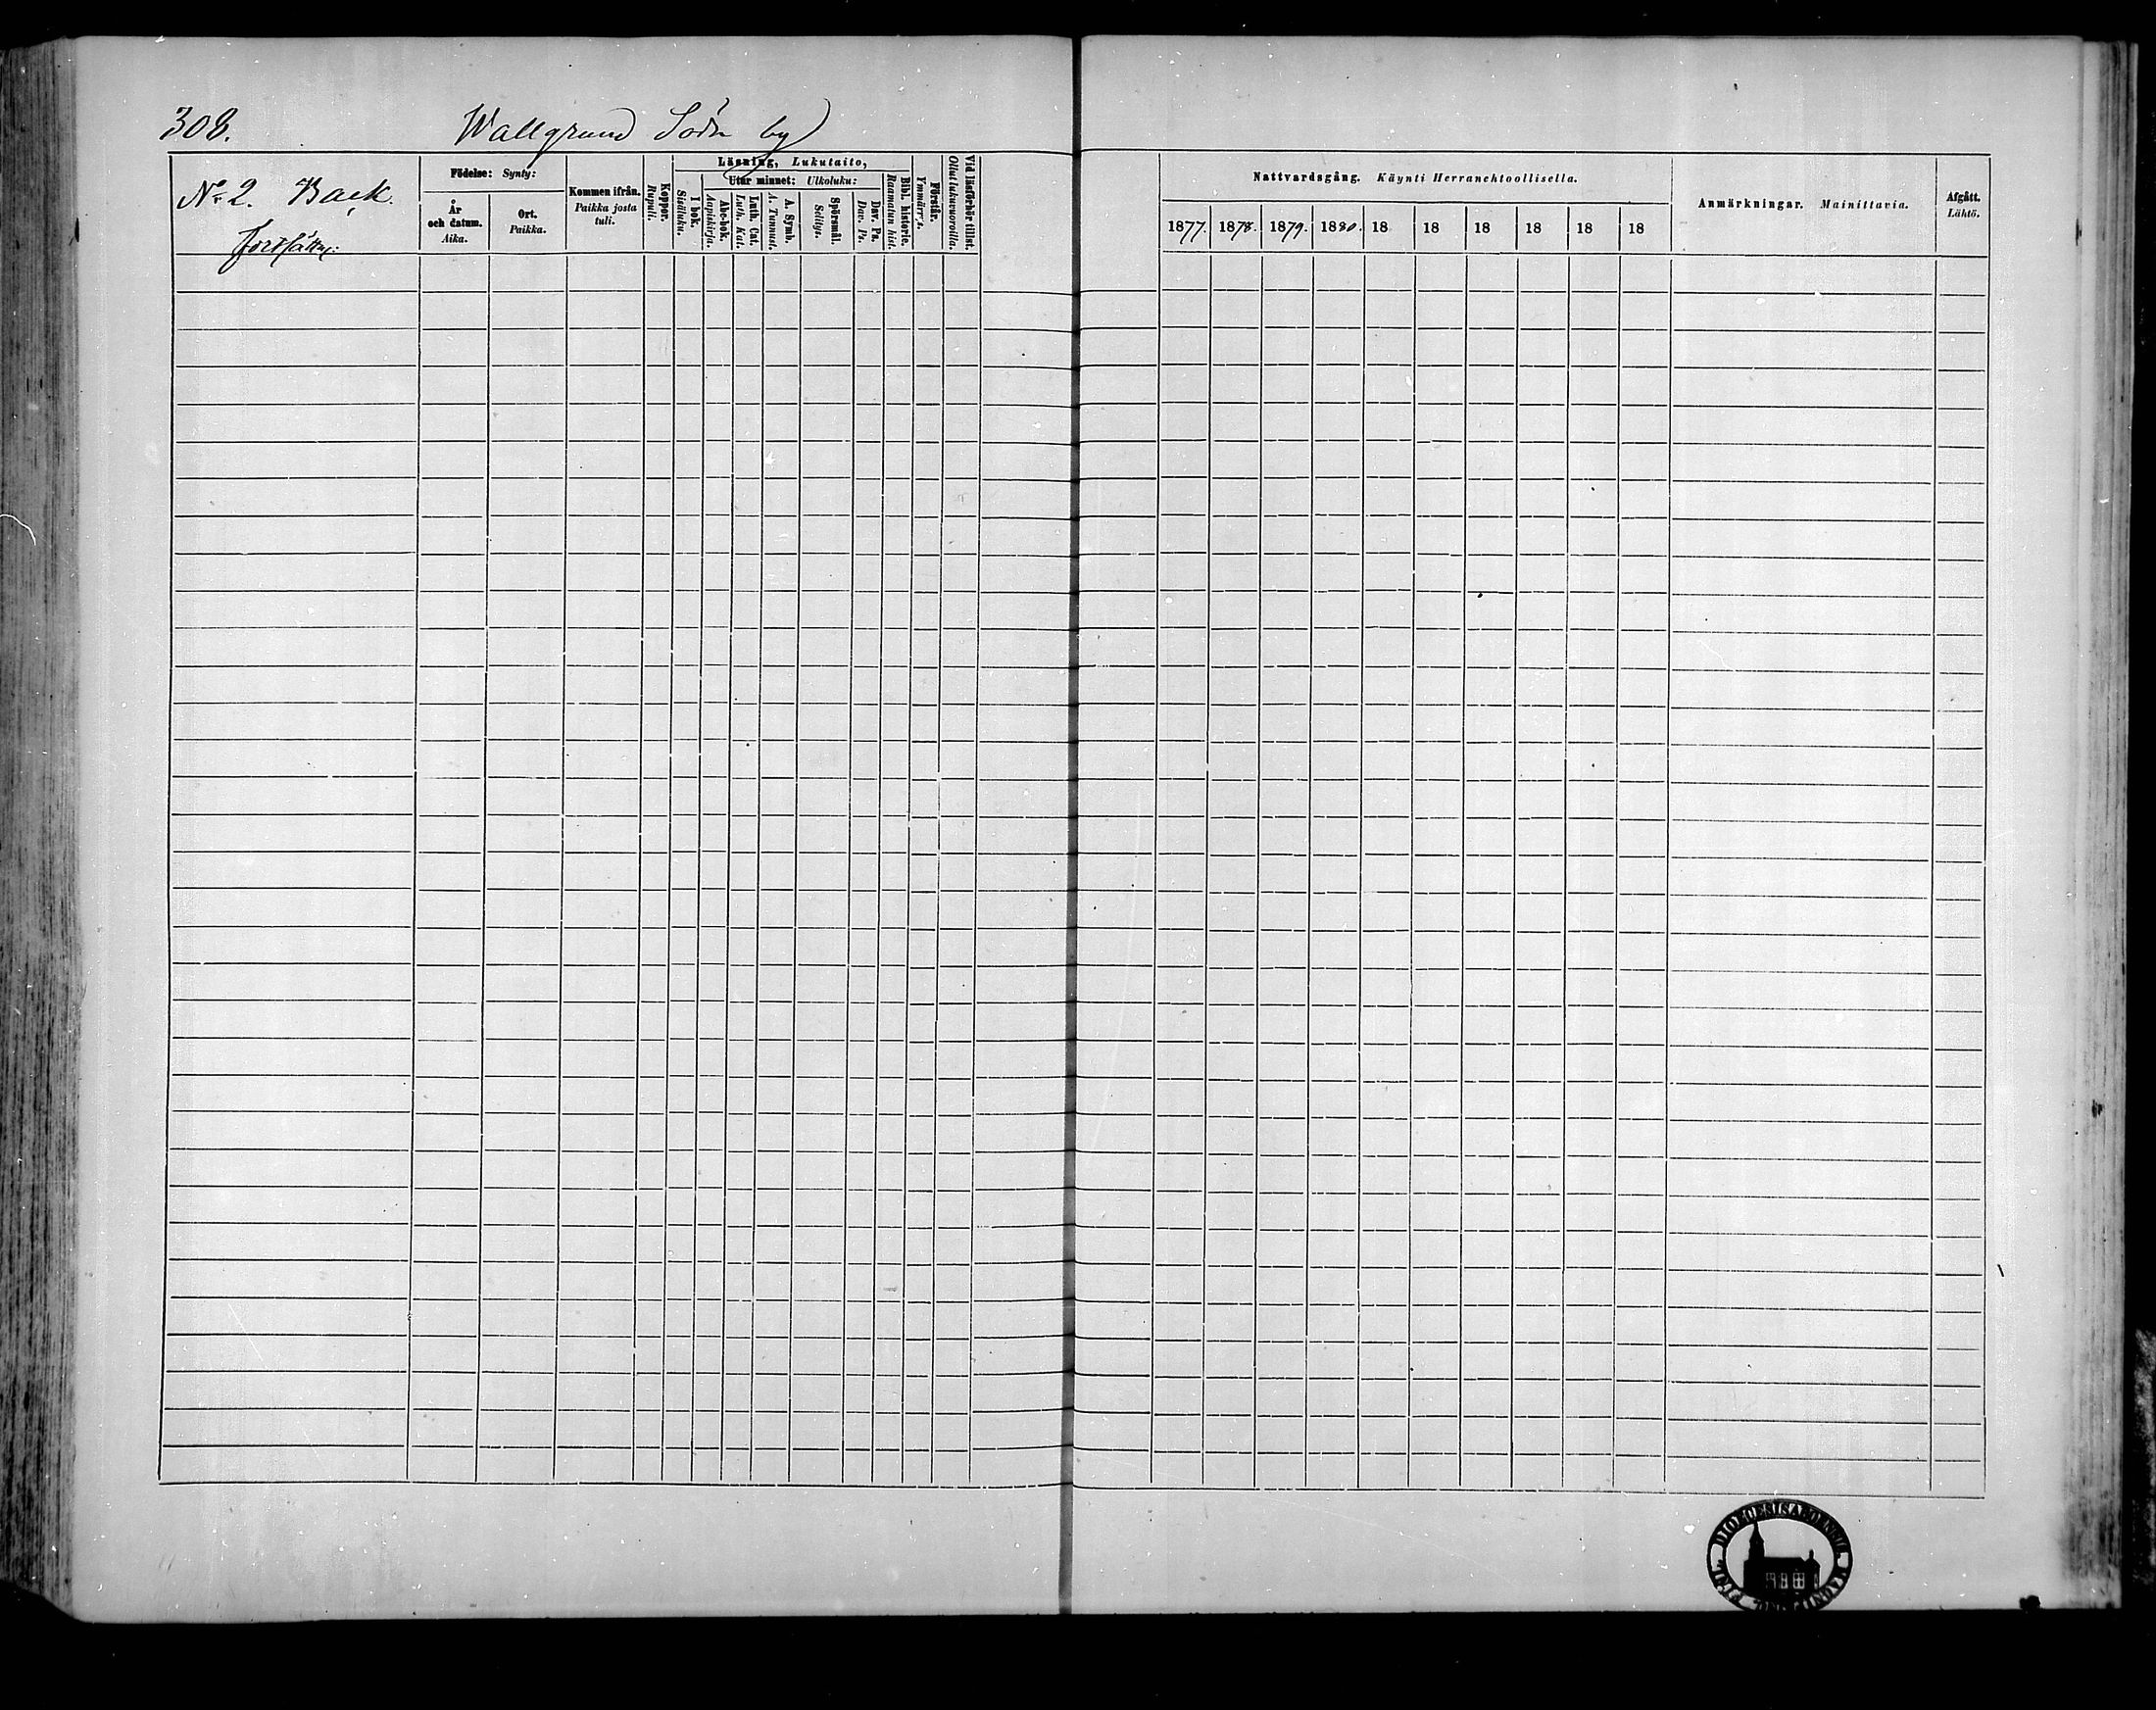 308. Wallgrund Södr by
No 2. Back.
fortsättn:
Födelse: Synty:
År och datum. Aika.
Ort. Paikka.
Kommen ifrån. Paikka josta tuli.
Koppor. Rupuli.
Läsning, Lukutaito,
I bok. Sisäluku.
Utur minnet: Ulkoluku:
Abc-bok. Aapiskirja.
Luth. Cat. Luth. Kat.
A. Symb. A. Tunnust.
Spörsmål. Selitys.
Dav. Ps. Dav. Ps.
Bibl. historie. Raamatun hist.
Förstår. Ymmärr:s.
Vid läsförhör tillst. Ollut lukuvuoroilla.
Nattvardsgång. Käynti Herranehtoollisella.
1877. 1878. 1879. 1880. 18 18 18 18 18 18
Anmärkningar. Mainittavia.
Afgått. Lähtö.